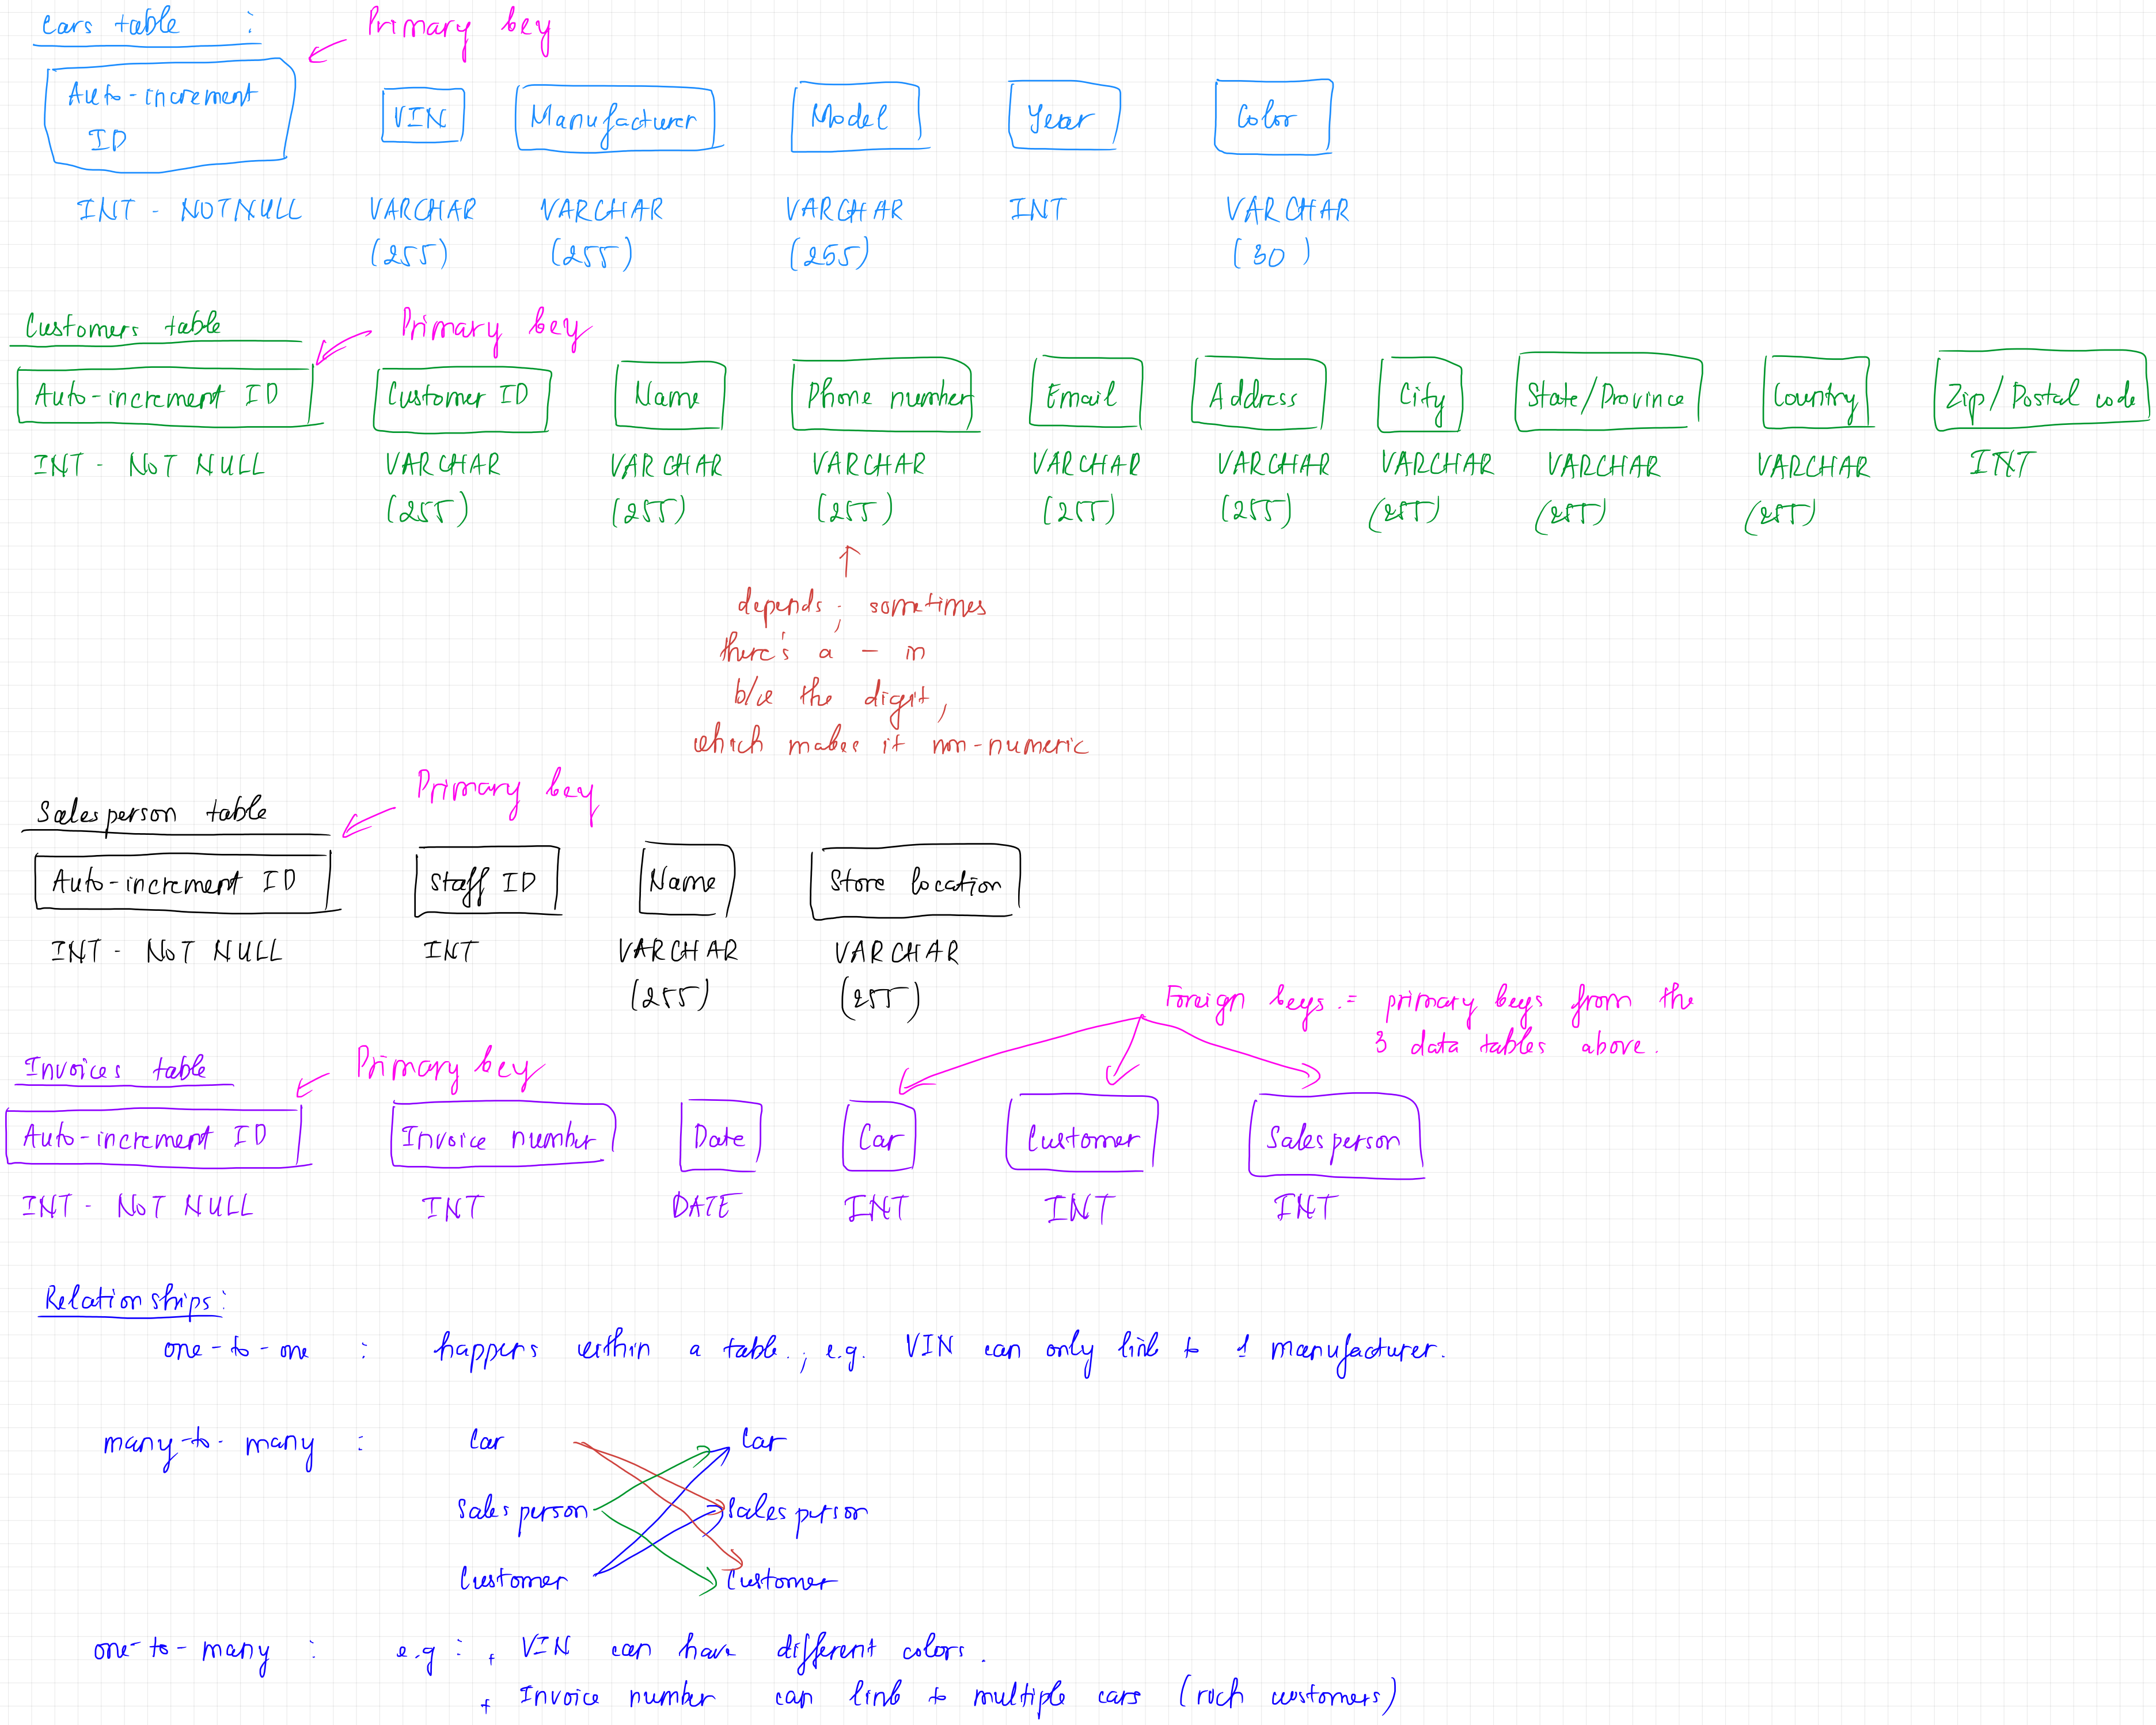 Cars table :
Primary key
Auto-increment ID
VIN
Manufacturer
Model
Year
Color
INT - NOT NULL
VARCHAR (255)
VARCHAR (255)
VARCHAR (255)
INT
VARCHAR (30)
Customers table
Primary key
Auto-increment ID
Customer ID
Name
Phone number
Email
Address
City
State/Province
Country
Zip/Postal code
INT - NOT NULL
VARCHAR (255)
VARCHAR (255)
VARCHAR (255)
VARCHAR (255)
VARCHAR (255)
VARCHAR (255)
VARCHAR (255)
VARCHAR (255)
INT
depends; sometimes
there's a - in
b/w the digit,
which makes it non-numeric
Salesperson table
Primary key
Auto-increment ID
Staff ID
Name
Store location
INT - NOT NULL
INT
VARCHAR (255)
VARCHAR (255)
Foreign keys = primary keys from the
3 data tables above.
Invoices table
Primary key
Auto-increment ID
Invoice number
Date
Car
Customer
Salesperson
INT - NOT NULL
INT
DATE
INT
INT
INT
Relationships:
one-to-one : happens within a table; e.g. VIN can only link to 1 manufacturer.
many-to-many :
Car Car
Salesperson Salesperson
Customer Customer
one-to-many : e.g : + VIN can have different colors.
+ Invoice number can link to multiple cars (rich customers)